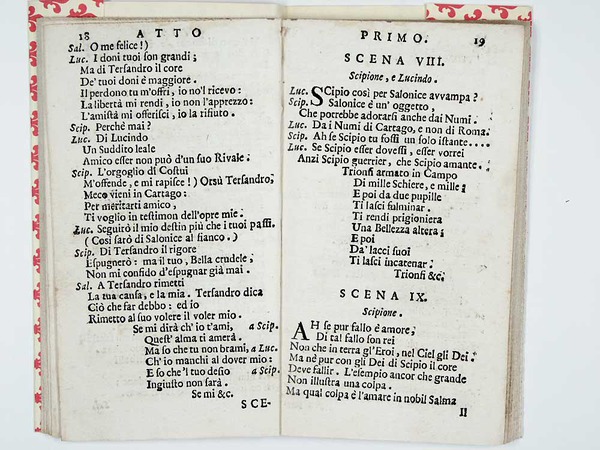 18 ATTO
Sal. O me felice!)
Luc. I doni tuoi son grandi;
Ma di Tersandro il core
De' tuoi doni è maggiore.
Il perdono tu m'offri, io no'l ricevo:
La libertà mi rendi, io non l'apprezzo:
L'amistà mi offerisci, io la rifiuto.
Scip. Perchè mai?
Luc. Di Lucindo
Un Suddito leale
Amico esser non può d'un suo Rivale.
Scip. L'orgoglio di Costui
M'offende, e mi rapisce!) Orsù Tersandro,
Meco vieni in Cartago:
Per meritarti amico,
Ti voglio in testimon dell'opre mie.
Luc. Seguirò il mio destin più che i tuoi passi.
(Così sarò di Salonice al fianco.)
Scip. Di Tersandro il rigore
Espugnerò: ma il tuo, Bella crudele,
Non mi confido d'espugnar già mai.
Sal. A Tersandro rimetti
La tua causa, e la mia. Tersandro dica
Ciò che far debbo: ed io
Rimetto al suo volere il voler mio.
Se mi dirà ch' io t'ami, a Scip.
Quest' alma ti amerà.
Ma so che tu non brami, a Luc.
Ch' io manchi al dover mio:
E so che'l tuo desio a Scip.
Ingiusto non sarà.
Se mi &c.
SCE-
PRIMO. 19
SCENA VIII.
Scipione, e Lucindo.
Luc. SCipio così per Salonice avvampa?
Scip. Salonice è un' oggetto,
Che potrebbe adorarsi anche dai Numi.
Luc. Da i Numi di Cartago, e non di Roma.
Scip. Ah se Scipio tu fossi un solo istante....
Luc. Se Scipio esser dovessi, esser vorrei
Anzi Scipio guerrier, che Scipio amante.
Trionfi armato in Campo
Di mille Schiere, e mille;
E poi da due pupille
Ti lasci fulminar.
Ti rendi prigioniera
Una Bellezza altera;
E poi
Da' lacci suoi
Ti lasci incatenar.
Trionfi &c.
SCENA IX.
Scipione.
AH se pur fallo è amore,
Di tal fallo son rei
Non che in terra gl'Eroi, nel Ciel gli Dei.
Ma nè pur con gli Dei di Scipio il core
Deve fallir. L'esempio ancor che grande
Non illustra una colpa.
Ma qual colpa è l'amare in nobil Salma
Il